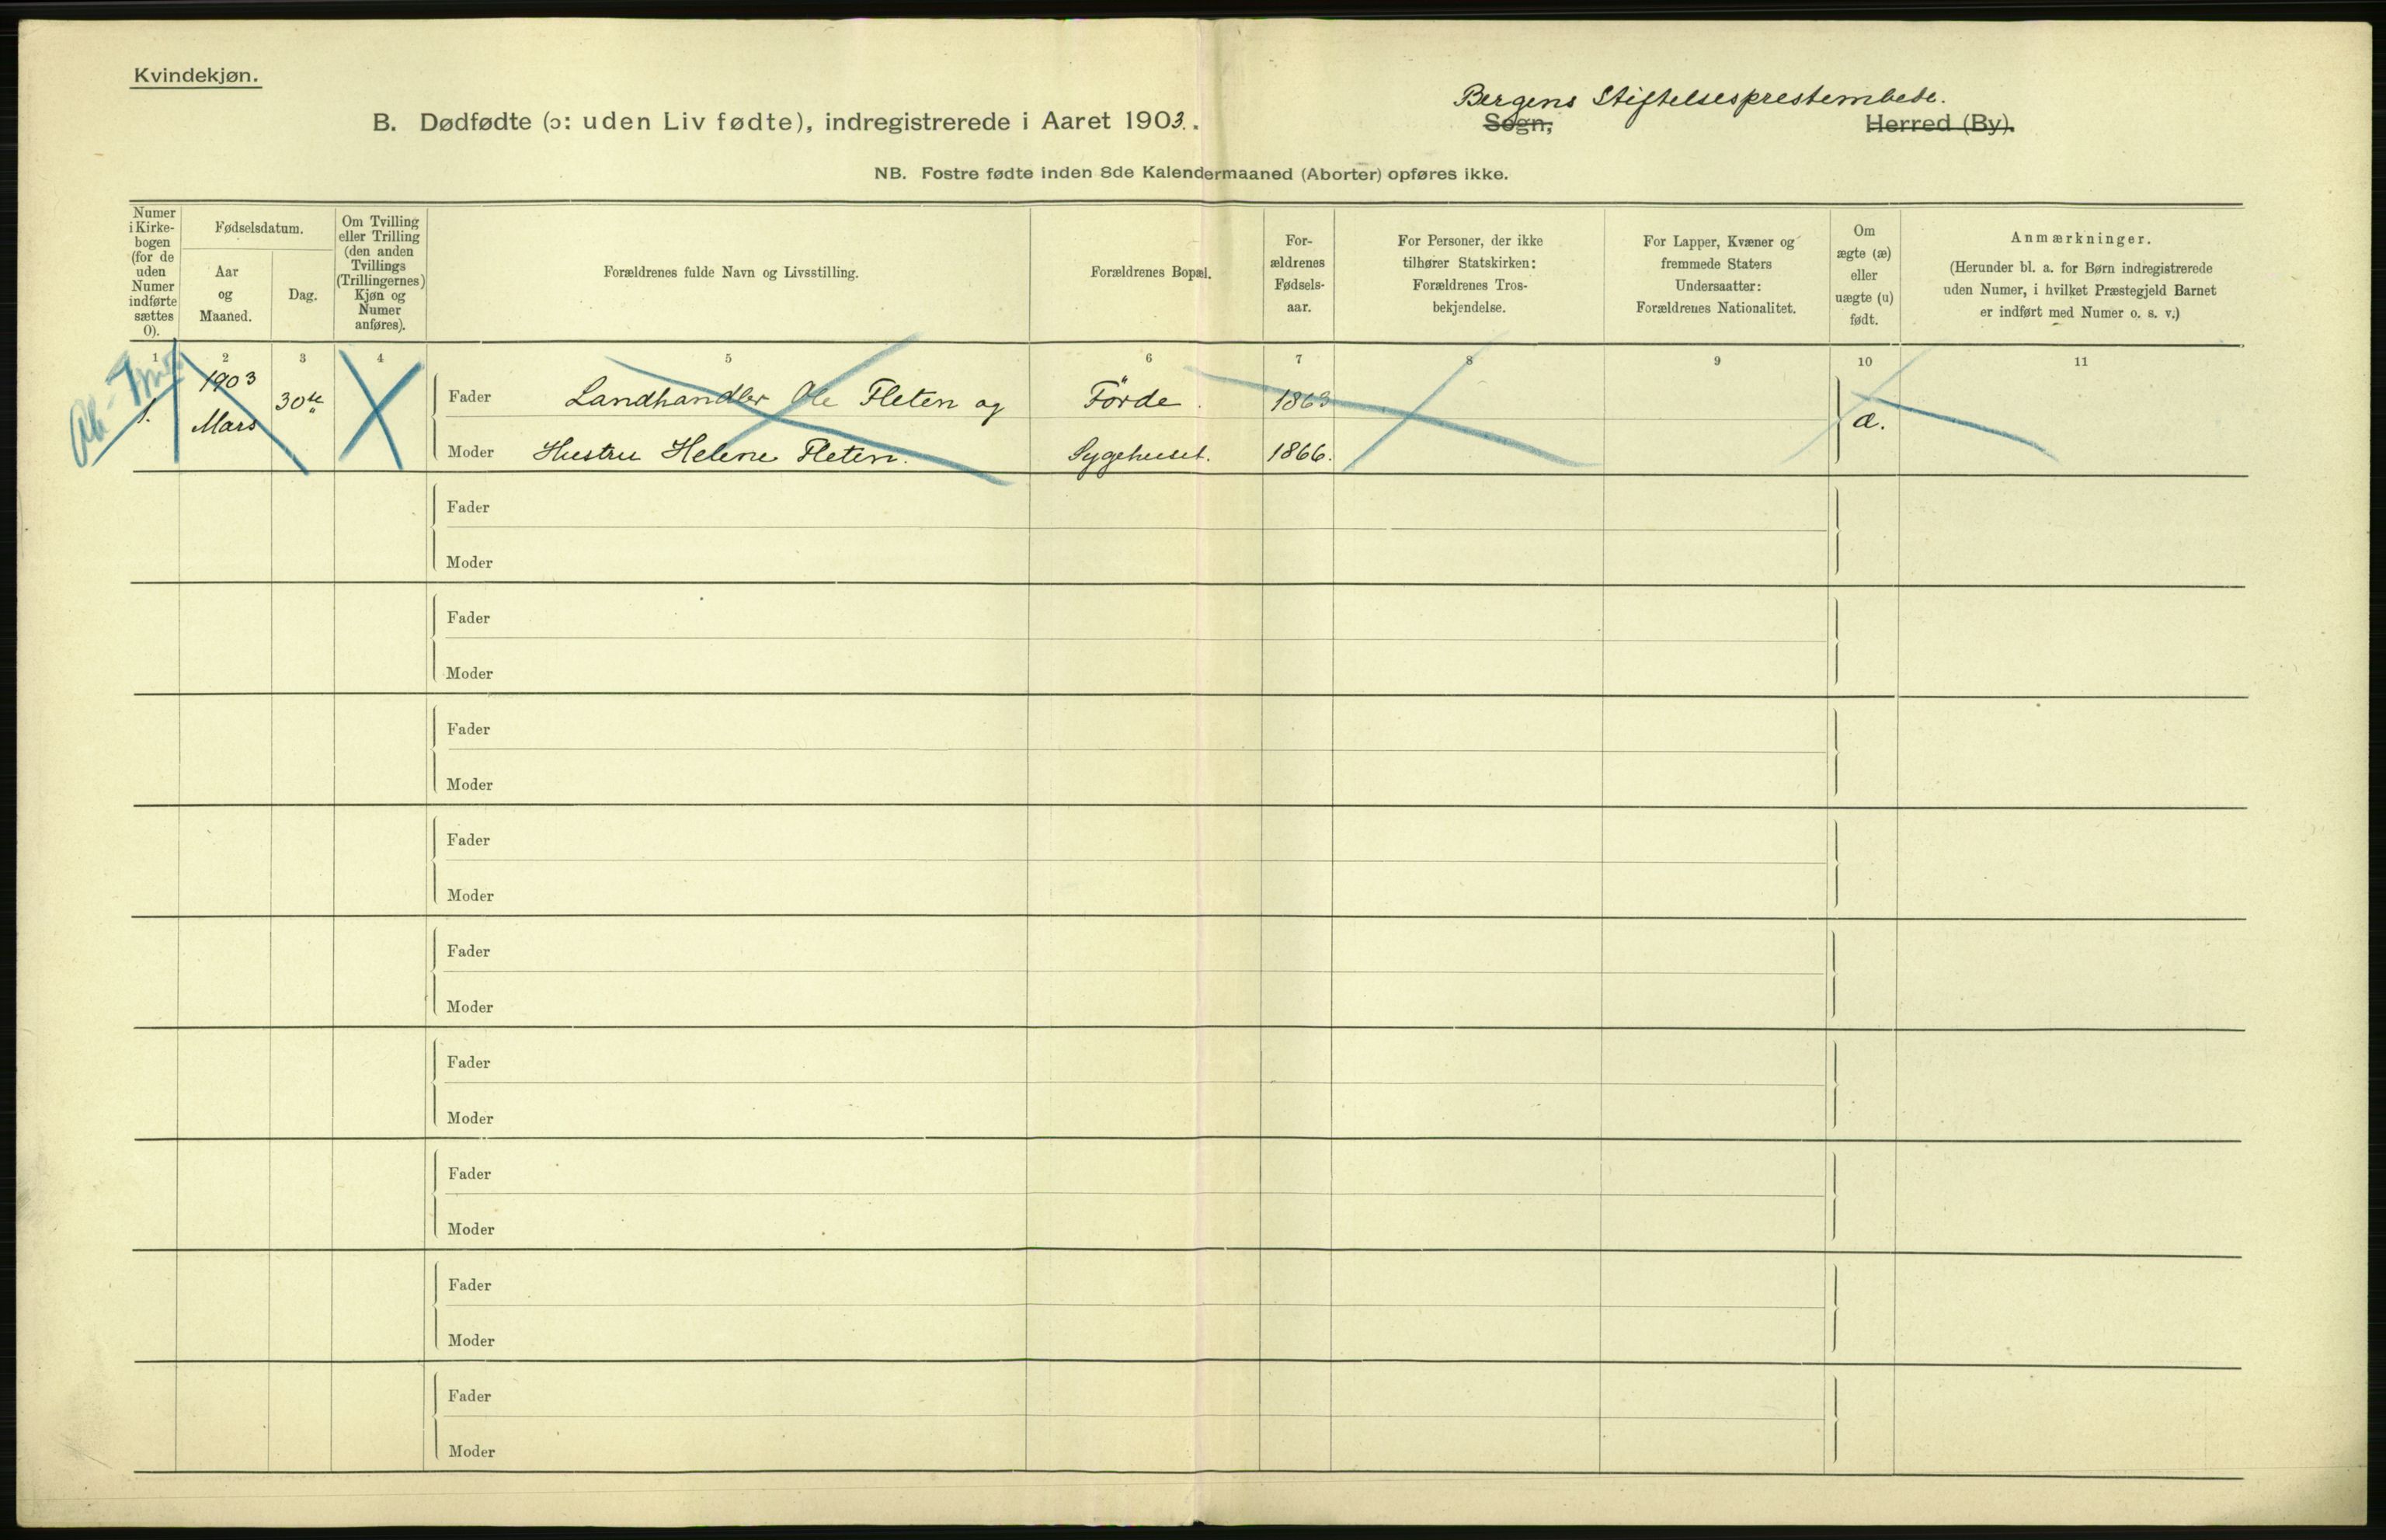 Kvindekjøn.
B. Dødfødte (ɔ: uden Liv fødte), indregistrerede i Aaret 1903.
Bergens Stiftelsesprestembede.
Sogn, Herred (By).
NB. Fostre fødte inden 8de Kalendermaaned (Aborter) opføres ikke.
Numer
i Kirke-
bogen
(for de
uden
Numer
indførte
sættes
0).
Fødselsdatum.
Aar
og
Maaned.
Dag.
Om Tvilling
eller Trilling
(den anden
Tvillings
(Trillingernes)
Kjøn og
Numer
anføres).
Forældrenes fulde Navn og Livsstilling.
Forældrenes Bopæl.
For-
ældrenes
Fødsels-
aar.
For Personer, der ikke
tilhører Statskirken:
Forældrenes Tros-
bekjendelse.
For Lapper, Kvæner og
fremmede Staters
Undersaatter:
Forældrenes Nationalitet.
Om
ægte (æ)
eller
uægte (u)
født.
Anmærkninger.
(Herunder bl. a. for Børn indregistrerede
uden Numer, i hvilket Præstegjeld Barnet
er indført med Numer o. s. v.)
1 2 3 4 5 6 7 8 9 10 11
1. 1903 Mars 30te
Fader Landhandler Ole Fleten og Förde. 1863
Moder Hustru Helene Fleten. Sygehuset. 1866.
æ.
Fader
Moder
Fader
Moder
Fader
Moder
Fader
Moder
Fader
Moder
Fader
Moder
Fader
Moder
Fader
Moder
Fader
Moder